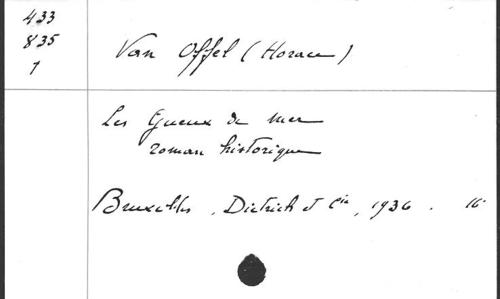 433
835
1
Van Offel (Horace)
Les Gueux de mer
roman historique
Bruxelles, Dietrich et Cie, 1936. 16°